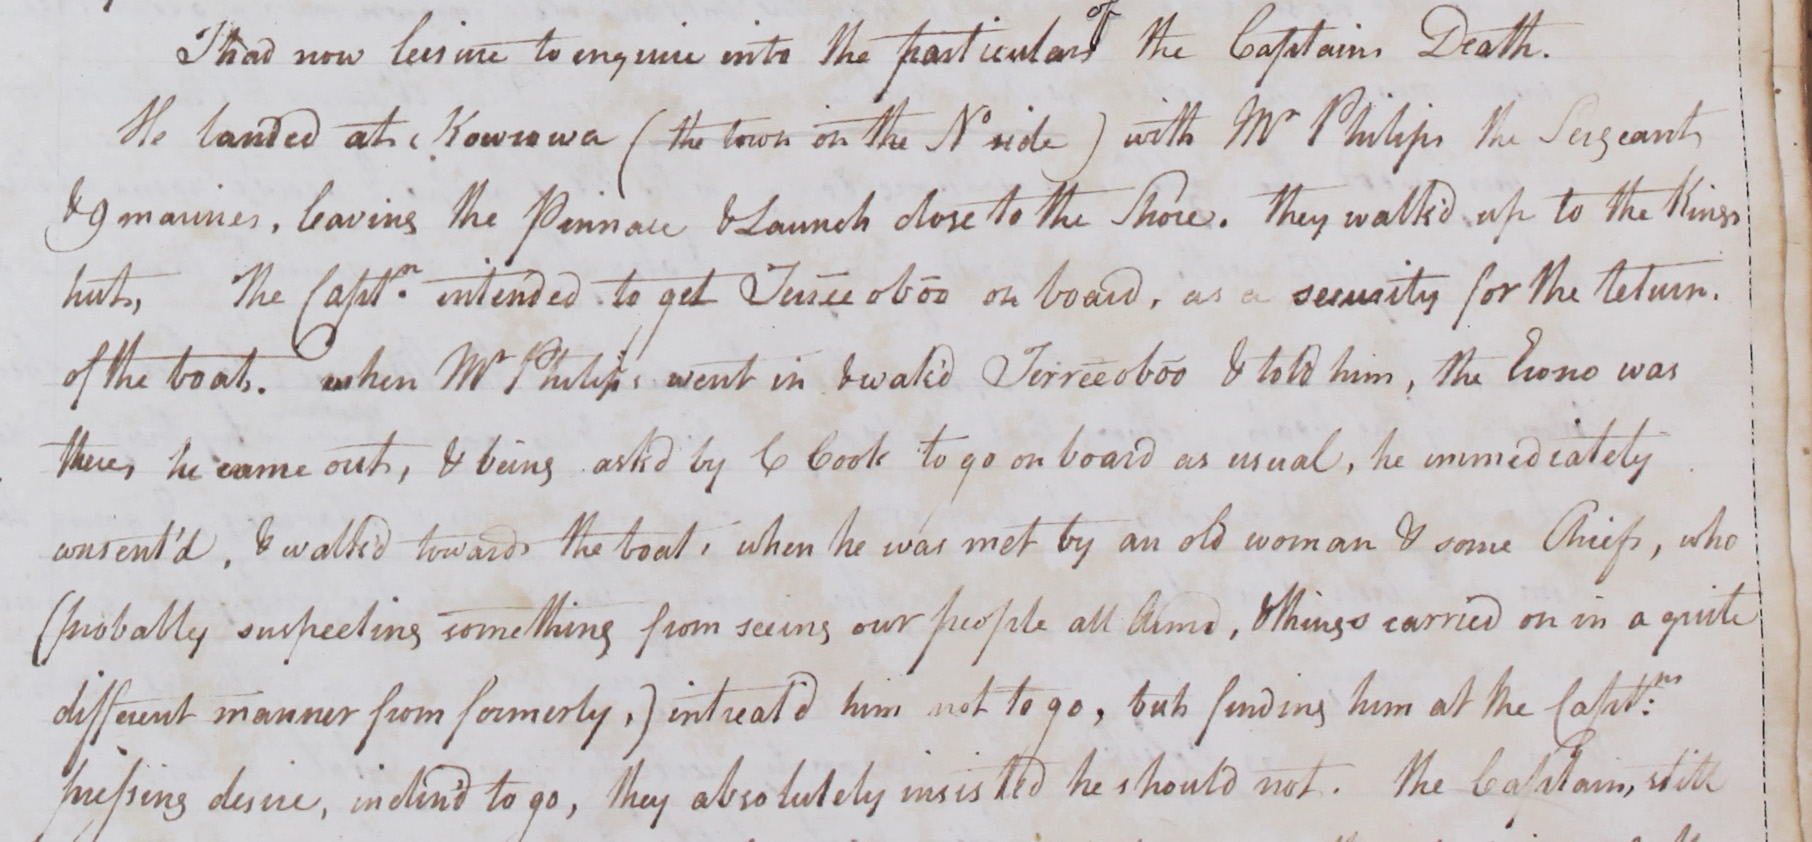 I had now leisure to enquire into the particulars of the Captains Death.
He landed at Kowrowa (the town on the Nº side) with Mr Philips the Sergeant
& 9 marines, leaving the Pinnace & Launch close to the Shore. they walk'd up to the Kings
hut, The Captn. intended to get Terreeoboo on board, as a security for the return.
of the boat. when Mr Philips went in & wak'd Terreeoboo & told him, the Erono was
there, he came out, & being ask'd by C Cook to go on board as usual, he immediately
consent'd, & walk'd towards the boat, when he was met by an old woman & some Chiefs, who
(probably suspecting something from seeing our people all Arm'd, & things carried on in a quite
different manner from formerly,) intreat'd him not to go, but finding him at the Captns:
pressing desire, inclin'd to go, they absolutely insisted he should not. The Captain, still